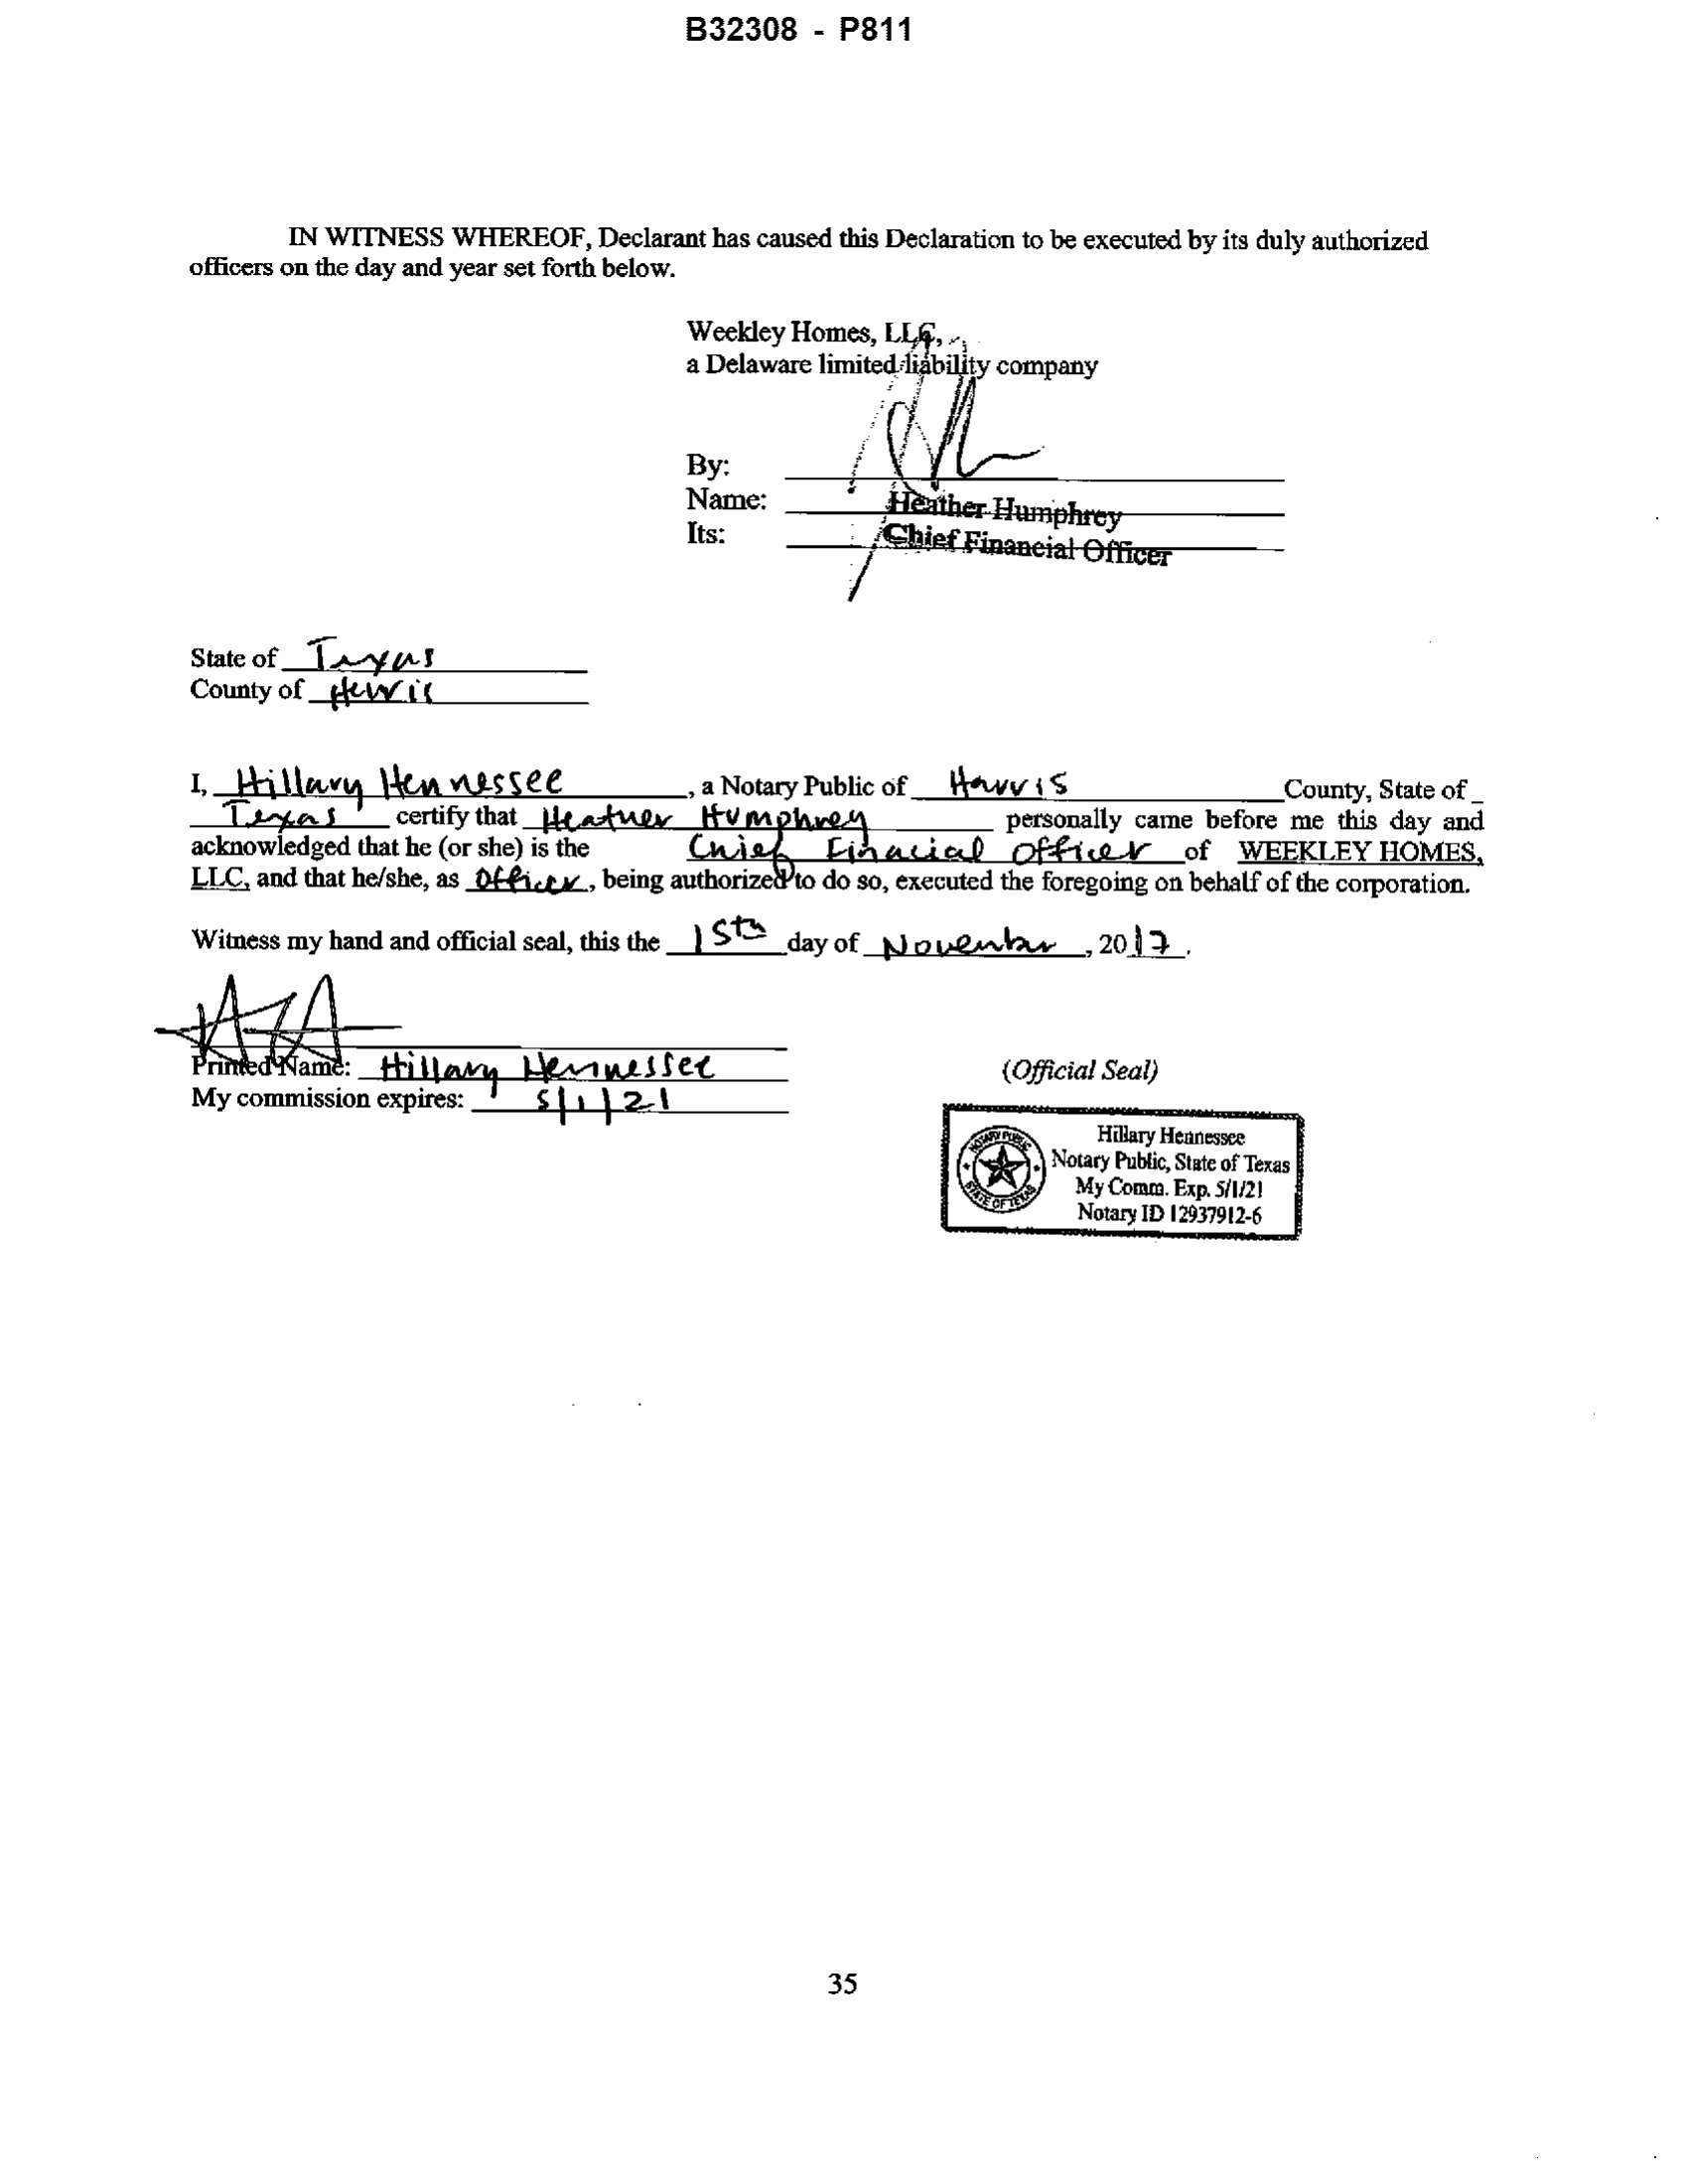 B32308 - P811
IN WITNESS WHEREOF, Declarant has caused this Declaration to be executed by its duly authorized
officers on the day and year set forth below.
Weekley Homes, LLC,
a Delaware limited liability company
By:
Name: Heather Humphrey
Its: Chief Financial Officer
State of Texas
County of Harris
I, Hillary Hennessee, a Notary Public of Harris County, State of
Texas certify that Heather Humphrey personally came before me this day and
acknowledged that he (or she) is the Chief Finacial Officer of WEEKLEY HOMES,
LLC, and that he/she, as Officer, being authorized to do so, executed the foregoing on behalf of the corporation.
Witness my hand and official seal, this the 1st day of November, 2017.
Printed Name: Hillary Hennessee
My commission expires: 5/1/21
(Official Seal)
NOTARY PUBLIC
STATE OF TEXAS
Hillary Hennessee
Notary Public, State of Texas
My Comm. Exp. 5/1/21
Notary ID 12937912-6
35